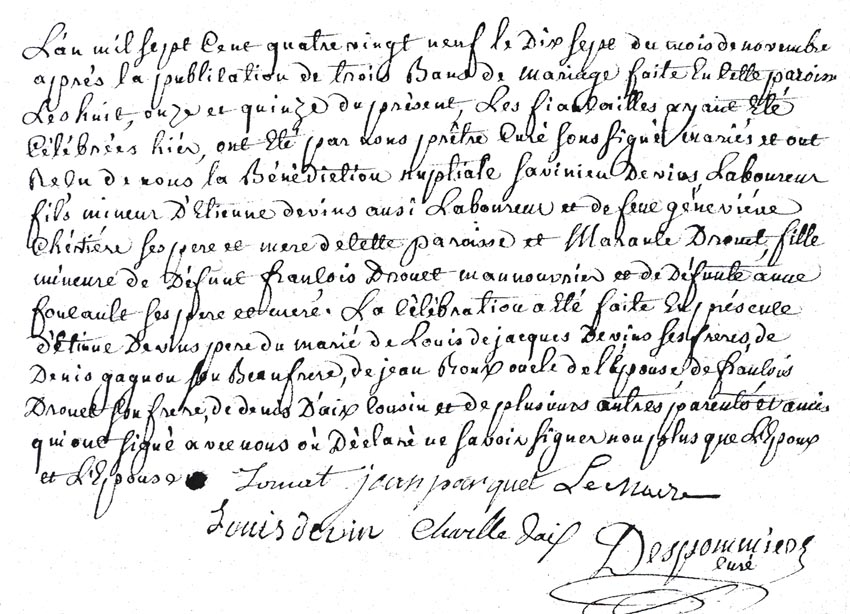 L'an mil sept Cent quatre vingt neuf le Dix sept du mois de novembre
après la publication de trois Bans de mariage faite En cette paroisse
Les huit, onze et quinze du présent, Les fiancailles ayant Eté
Célébrées hiér, ont Eté par nous prêtre Curé soussigné mariés et ont
Recu de nous la Bénédiction nuptiale savinien Devins Laboureur
fils mineur D'Etienne devins aussi Laboureur et de feue géneviéve
ses pere et mere de cette paroisse et Maraule Drouet, fille
mineure de Défunt francois Drouet mannouvrier et de Défunte anne
foucault ses pere et mere. La Célébration a Eté faite En présence
d'Etienne Devins pere du marié de Louis de jacques Devins ses freres, de
Denis gagnon son Beaufrere, de jean Roux oncle de l'Epouse, de francois
Drouet son frere, de denis D'aix Cousin et de plusieurs autres parents et amis
qui ont signé avec nous où Déclaré ne savoir signer non plus que L'Epoux
et L'Epouse
jean parquet Le Maire
Louis devin Charlle daix
Despommiers
Curé